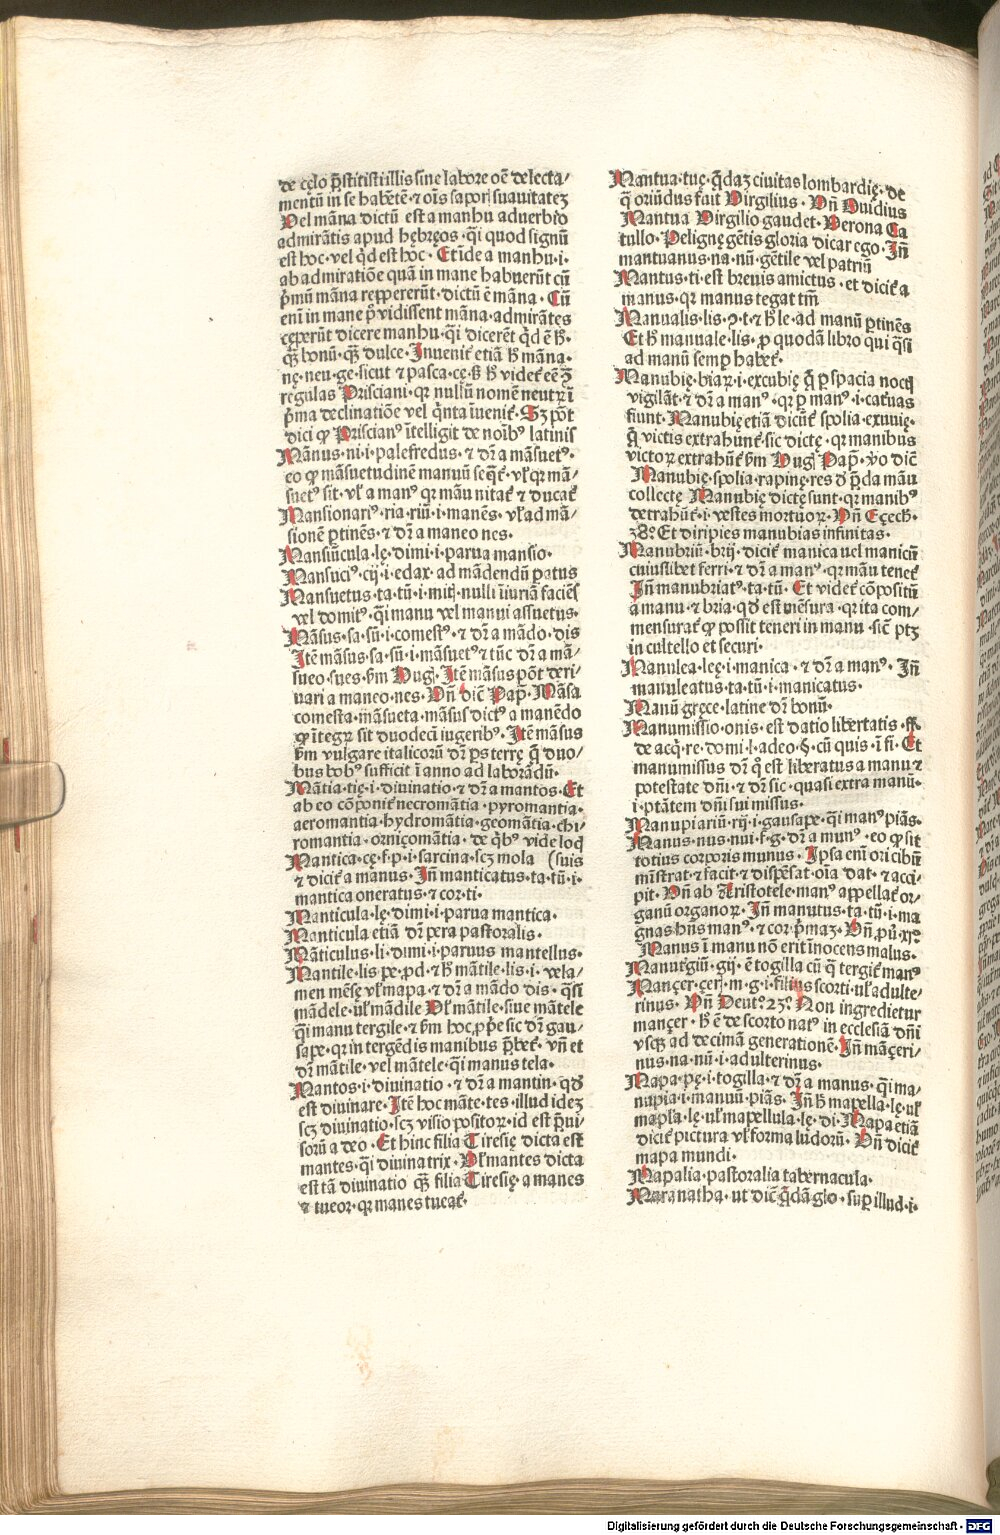 de cęlo p̄stitisti illis sine labore oē delecta/
mentū in se habētē ⁊ oīs sapori suauitateꝫ
Vel māna dictū est a manhu aduerbio
admirātis apud hębręos · q̄i quod signū
est hoc · vel qd est hoc · Et ide a manhu · i ·
ab admiratiōe quā in mane habuerūt cū
p̄mū māna reppererūt · dictū ē māna · Cū
enī in mane p̄ vidissent māna · admirātes
cęperūt dicere manhu · q̄i dicerēt qd ē h̄ ·
qꝫ bonū · qꝫ dulce · Inuenit̄ etiā h̄ māna ·
nę · neu · ge · sicut ⁊ pasca · cę · ꝫ h̄ videt̄ eē ꝫ
regulas Prisciani · qr nullū nomē neutr̄ ī
p̄ma declinatiōe vel q̄nta īuenit̄ · Sꝫ pōt
dici ꝙ Priscianꝰ ītelligit de noībꝰ latinis
Mānus · ni · i · palefredus · ⁊ dr̄ a māsuetꝰ ·
eo ꝙ māsuetudinē manuū seq̄t̄ · vl̄ qr mā/
suetꝰ sit · vl̄ a manꝰ qr māu nitat̄ ⁊ ducat̄
Mansionariꝰ · ria · riū · i · manēs · vl̄ ad mā/
sionē ꝑtinēs · ⁊ dr̄ a maneo nes ·
Mansiūcula · lę · dimi · i · parua mansio ·
Mansuciꝰ · cij · i · edax · ad mādendū paratus
Mansuetus · ta · tū · i · mitꝭ · nulli īiuriā faciēs
vel domitꝰ · q̄i manu vel manui assuetus ·
Māsus · sa · sū · i · comestꝰ · ⁊ dr̄ a mādo · dis
Itē māsus · sa · sū · i · māsuetꝰ ⁊ tūc dr̄ a mā/
sueo · sues · ẜm Hug̣ · Itē māsus pōt deri/
uari a maneo · nes · Vn̄ dic̄ Pap̄ · Māsa
comesta · māsueta · māsus dictꝰ a manēdo
ꝙ ītegꝝ sit duodecī iugeribꝰ · Itē māsus
ẜm vulgare italicorū dr̄ ps terrę q̄ duo/
bus bobꝰ sufficit ī anno ad laborādū ·
Mātia · tię · i · diuinatio · ⁊ dr̄ a mantos · Et
ab eo cōponit̄ necromātia · pyromantia ·
aeromantia · hydromātia · geomātia · chi/
romantia · orniçomātia · de qbꝰ vide loq̄
Mantica · cę · f · p · i · sarcina · scꝫ mola (suis
⁊ dicit̄ a mānus · In̄ manticatus · ta · tū · i ·
mantica oneratus · ⁊ cor · ti ·
Manticula · lę · dimi · i · parua mantica ·
Manticula etiā dr̄ pera pastoralis ·
Māticulus · li · dimi · i · paruus mantellus ·
Mantile · lis pe · pd · ⁊ h̄ mātile · lis · i · vela/
men mēsę vl̄ mapa · ⁊ dr̄ a mādo dis · q̄si
mādele · vl̄ mādile Vl̄ mātile · siue mātele
q̄i manu tergile · ⁊ ẜm hoc ꝓpe sic dr̄ gau/
sape · qr in tergēdis manibus p̄bet̄ · vn̄ et
dr̄ mātile · vel mātele · q̄i manus tela ·
Mantos · i · diuinatio · ⁊ dr̄ a mantin · qd
est diuinare · Itē hoc māte · tes · illud ideꝫ
scꝫ diuinatio · scꝫ visio positoꝝ · id est p̄ui/
sorū a deo · Et hinc filia Tiresię dicta est
mantes · q̄i diuina trix · Vl̄ mantes dicta
est tā diuinatio qꝫ filia Tiresię · a manes
⁊ tueor · qr manes tueat̄ ·
Mantua · tuę · q̄daꝫ ciuitas lombardię · de
q̄ oriūdus fuit Virgilius · Vn̄ Ouidius
Mantua Virgilio gaudet · Verona Ca
tullo · Pelignę gētis gloria dicar ego · In̄
mantuanus · na · nū · gētile vel patriū
Mantus · ti · est breuis amictus · et dicit̄ a
manus · qr manus tegat tm̄
Manualis · lis · ꝯ · t · ⁊ h̄ le · ad manū ꝑtinēs
Et h̄ manuale · lis · ꝓ quodā libro qui q̄si
ad manū semꝑ habet̄ ·
Manubię · biaꝝ · i · excubię q̄ ꝑ spacia noctꝭ
vigilāt · ⁊ dr̄ a manꝰ · qr ꝑ manꝰ · i · cat̄uas
fiunt · Manubię etiā dicūt̄ spolia · exuuię ·
q̄ victis extrahunt̄ · sic dictę · qr manibus
victoꝝ extrahūt̄ ẜm Hug̣ Pap̄ · vo dic̄
Manubię · spolia · rapinę · res ⁊ p̄da māu
collectę Manubię dictę sunt · qr manibꝰ
detrahūt̄ · i · vestes mortuoꝝ · Vn̄ Eçech ·
38° Et diripies manubias infinitas ·
Manubriū · brij · dicit̄ manica uel maniciū
cuiuslibet ferri · ⁊ dr̄ a manꝰ · qr māu tenet̄
In̄ manubriatꝰ · ta · tū · Et videt̄ cōpositū
a manu · ⁊ bria · qd est mēsura · qr ita com/
mensurat̄ ꝙ possit teneri in manu · sic̄ ptꝫ
in cultello et securi ·
Manulea · leę · i · manica · ⁊ dr̄ a manꝰ · In̄
manuleatus · ta · tū · i · manicatus ·
Manū gręce · latine dr̄ bonū ·
Manumissio · onis · est datio libertatis · ff ·
de acq̄ · re · domi · l · adeo · § · cū quis · ī fi · Et
manumissus dr̄ q̄ est liberatus a manu ⁊
potestate dn̄i · ⁊ dr̄ sic · quasi extra manū ·
i · ptātem dn̄i sui missus ·
Manupiariū · rij · i · gausape · q̄i manꝰ piās ·
Manus · nus · nui · f · g · dr̄ a munꝰ · eo ꝙ sit
totius corporis munus · Ipsa enī ori cibū
mīstrat · ⁊ facit · ⁊ dispēsat oīa dat · ⁊ acci/
pit · Vn̄ ab Aristotele manꝰ appellat̄ or/
ganū organoꝝ · In̄ manutus · ta · tū · i · ma
gnas hn̄s manꝰ · ⁊ cor p̄maꝫ · Vn̄ · ꝓu · xj°
Manus ī manu nō erit īnocens malus ·
Manut̄giū · gij · ē togilla cū q̄ tergit̄ manꝰ
Mançer · çerꝭ · m · g · i · filius scorti · vl̄ adulte/
rinus · Vn̄ Deut° 23° Non ingredietur
mançer · h̄ ē de scorto natꝰ in ecclesiā dn̄i
vsqꝫ ad decimā generationē · In̄ māçeri/
nus · na · nū · i · adulterinus ·
Mapa · pę · i · togilla · ⁊ dr̄ a manus · q̄i ma/
nupia · i · manuū piās · In̄ h̄ mapella · lę · vl̄
mapl̄a · lę · vl̄ mapellula · lę · di · Mapa etiā
dicit̄ pictura vl̄ forma ludorū · Vn̄ dicit̄
mapa mundi ·
Mapalia · pastoralia tabernacula ·
Maranatha · ut dic̄ q̄dā glo · suꝑ illud · i ·
Digitalisierung gefördert durch die Deutsche Forschungsgemeinschaft - DFG